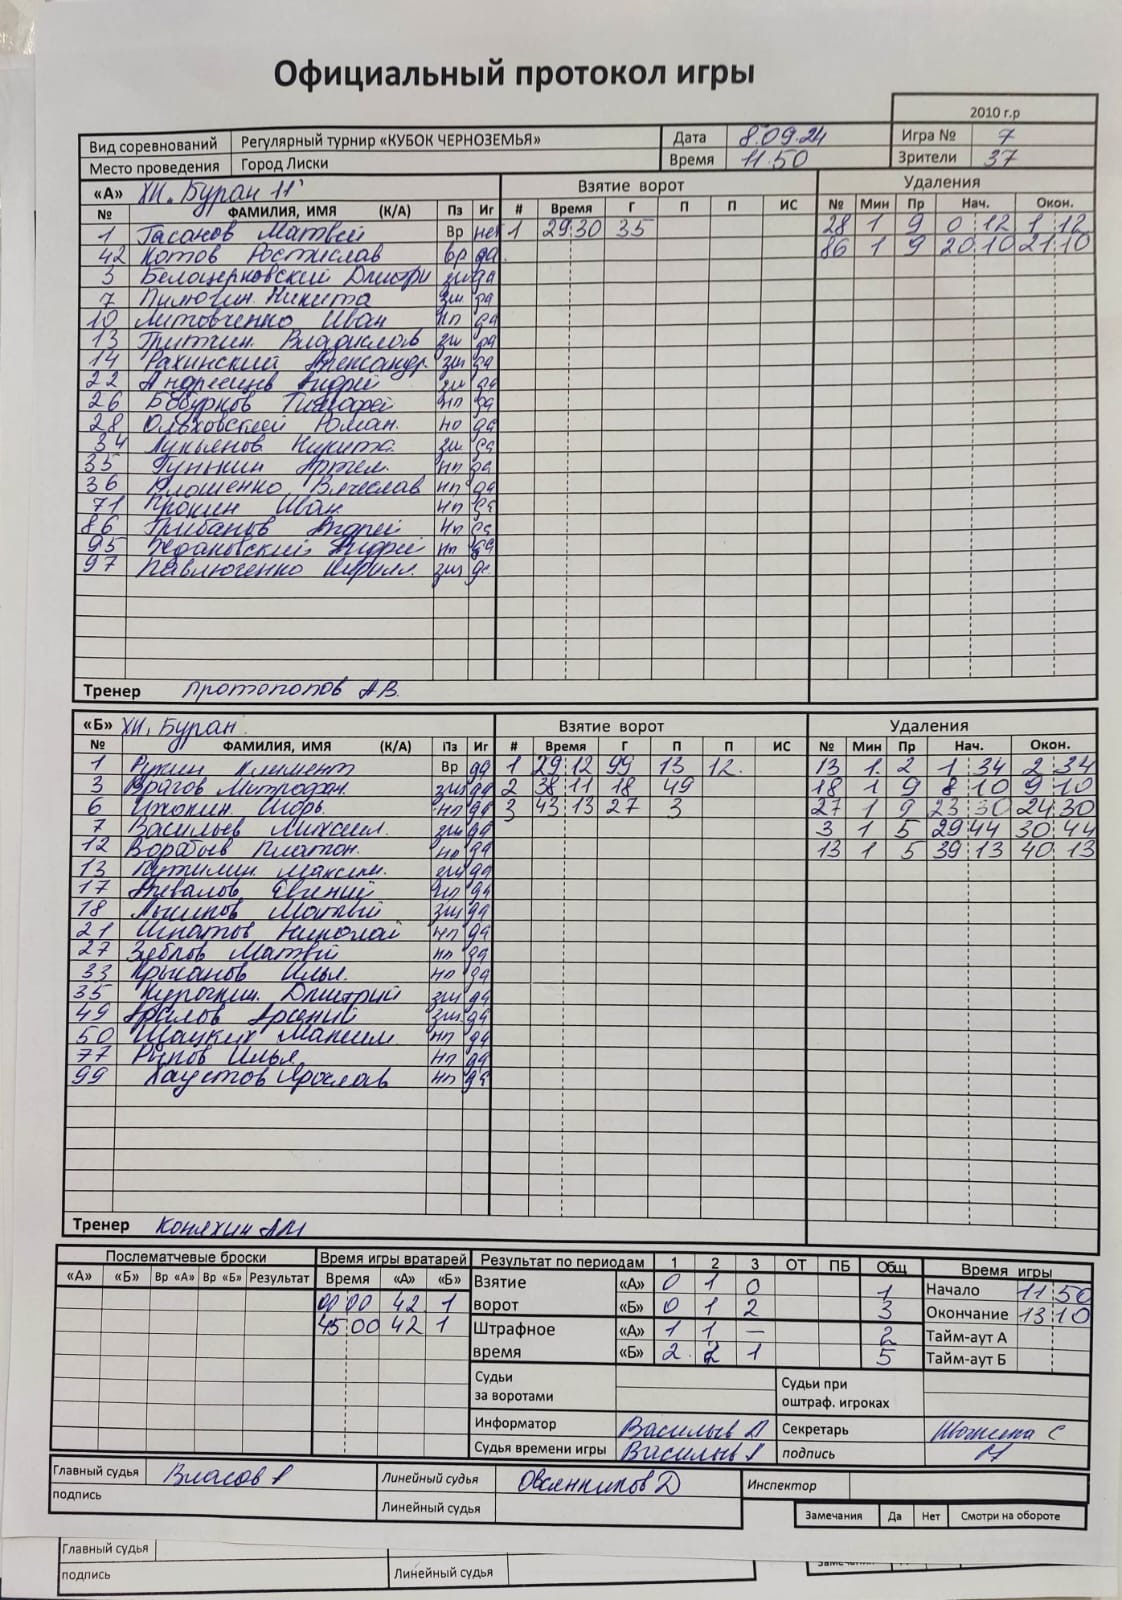 Официальный протокол игры
2010 г.р
Вид соревнований Регулярный турнир «КУБОК ЧЕРНОЗЕМЬЯ» Дата 8.09.24 Игра № 7
Место проведения Город Лиски Время 11.50 Зрители 37
«А» ХК. Буран 11' Взятие ворот Удаления
№ ФАМИЛИЯ, ИМЯ (К/А) Пз Иг # Время Г П П ИС № Мин Пр Нач. Окон.
1 Гасанов Матвей Вр нет 1 29 30 35 28 1 9 0 12 1 12
42 Котов Ростислав вр да 86 1 9 20 10 21 10
3 Белоцерковский Дмитри зщ да
7 Пилюгин Никита зщ да
10 Литовченко Иван нп да
13 Владислав зщ да
14 Рахинский Александр зщ да
22 Андрей зщ да
26 Бобурков Тимофей нп да
28 Ольховский Роман. но да
34 Лукьянов Никита зщ да
35 Гунькин Артем. нп да
36 Клошенко Вячеслав нп да
71 Прокин Иван нп да
86 Грибанов Андрей нп да
95 Ждановский Андрей нп да
97 Павлюченко Кирилл. зщ да
Тренер Протопопов А.В.
«Б» ХК. Буран Взятие ворот Удаления
№ ФАМИЛИЯ, ИМЯ (К/А) Пз Иг # Время Г П П ИС № Мин Пр Нач. Окон.
1 Климент Вр да 1 29 12 99 13 12. 13 1. 2 1 34 2 34
3 Врагов Митрофан. зщ да 2 38 11 18 49 18 1 9 8 10 9 10
6 Игорь. нп да 3 43 13 27 3 27 1 9 23 30 24 30
7 Васильев Михаил. зщ да 3 1 5 29 44 30 44
12 Воробьв Платон. но да 13 1 5 39 13 40 13
13 Путилин Максим. зщ да
17 Евгений нп да
18 Матвей зщ да
21 Игнатов Николай нп да
27 Зяблов Матвей нп да
33 Крыканов Илья. но да
35 Курочкин. Дмитрий зщ да
49 Арсений зщ да
50 Шацких Максим. нп да
77 Рыпов Илья нп да
99 Хаустов Ярослав нп да
Тренер Коняхин АМ
Послематчевые броски Время игры вратарей Результат по периодам 1 2 3 ОТ ПБ Общ Время игры
«А» «Б» Вр «А» Вр «Б» Результат Время «А» «Б» Взятие «А» 0 1 0 1 Начало 11 50
00 00 42 1 ворот «Б» 0 1 2 3 Окончание 13 10
45 00 42 1 Штрафное «А» 1 1 — 2 Тайм-аут А
время «Б» 2 2 1 5 Тайм-аут Б
Судьи за воротами Судьи при оштраф. игроках
Информатор Васильев Д Секретарь С
Судья времени игры Васильев подпись
Главный судья Власов Линейный судья Овсянников Д Инспектор
подпись Линейный судья Замечания Да Нет Смотри на обороте
Главный судья
подпись Линейный судья